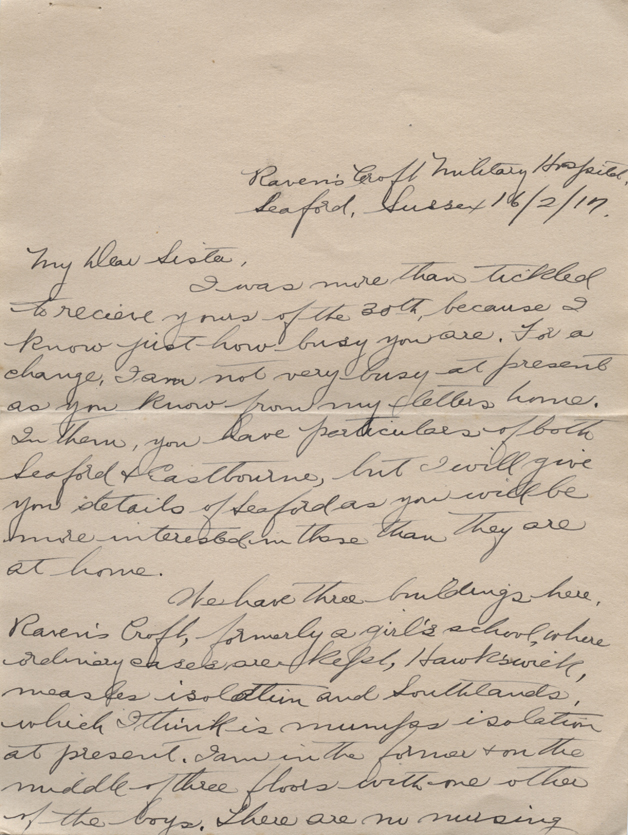 Raven's Croft Military Hospital,
Seaford, Sussex 16/2/17.
My Dear Sister,
I was more than tickled
to recieve yours of the 30th, because I
know just how busy you are. For a
change, I am not very busy at present
as you know from my letters home.
In them, you have particulars of both
Seaford & Eastbourne, but I will give
you details of Seaford as you will be
more interested in those than they are
at home.
We have three buildings here,
Raven's Croft, formerly a girl's school, where
ordinary cases are kept, Hawkswick,
measles isolation and Southlands,
which I think is mumps isolation
at present. I am in the former & on the
middle of three floors with one other
of the boys. There are no nursing